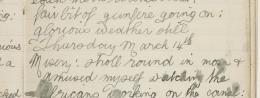 fair bit of gunfire going on;
glorious weather still.
Thursday March 14th
Misery: stroll round in morn &
amused myself watching the
Africans working on the canal: